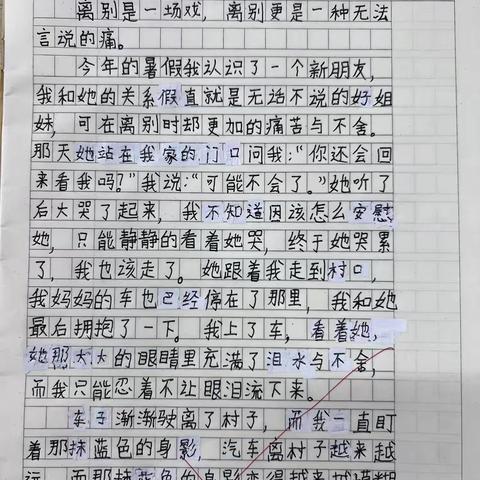 离别是一场戏，离别更是一种无法
言说的痛。
今年的暑假我认识了一个新朋友，
我和她的关系假直就是无话不说的好姐
妹，可在离别时却更加的痛苦与不舍。
那天她站在我家的门口问我：“你还会回
来看我吗？”我说：“可能不会了。”她听了
后大哭了起来，我不知道因该怎么安慰
她，只能静静的看着她哭，终于她哭累
了，我也该走了。她跟着我走到村口，
我妈妈的车也已经停在了那里，我和她
最后拥抱了一下。我上了车，看着她，
她那大大的眼睛里充满了泪水与不舍，
而我只能忍着不让眼泪流下来。
车子渐渐驶离了村子，而我一直盯
着那抹蓝色的身影，汽车离村子越来越
远，而那抹蓝色的身影变得越来越模糊